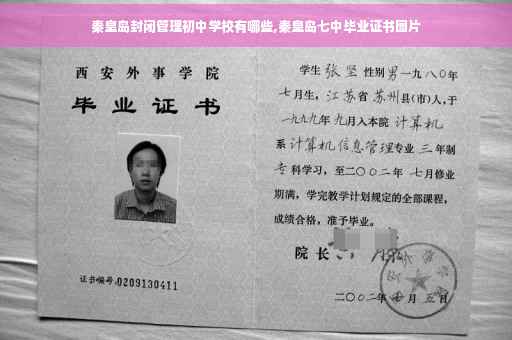 秦皇岛封闭管理初中学校有哪些,秦皇岛七中毕业证书图片
西安外事学院
毕业证书
证书编号:0209130411
学生张坚性别男一九八〇年
七月生,江苏省苏州县(市)人,于
一九九九年九月入本院计算机
系计算机信息管理专业三年制
专科学习,至二〇〇二年七月修业
期满,学完教学计划规定的全部课程,
成绩合格,准予毕业。
院长
二〇〇二年 月五日